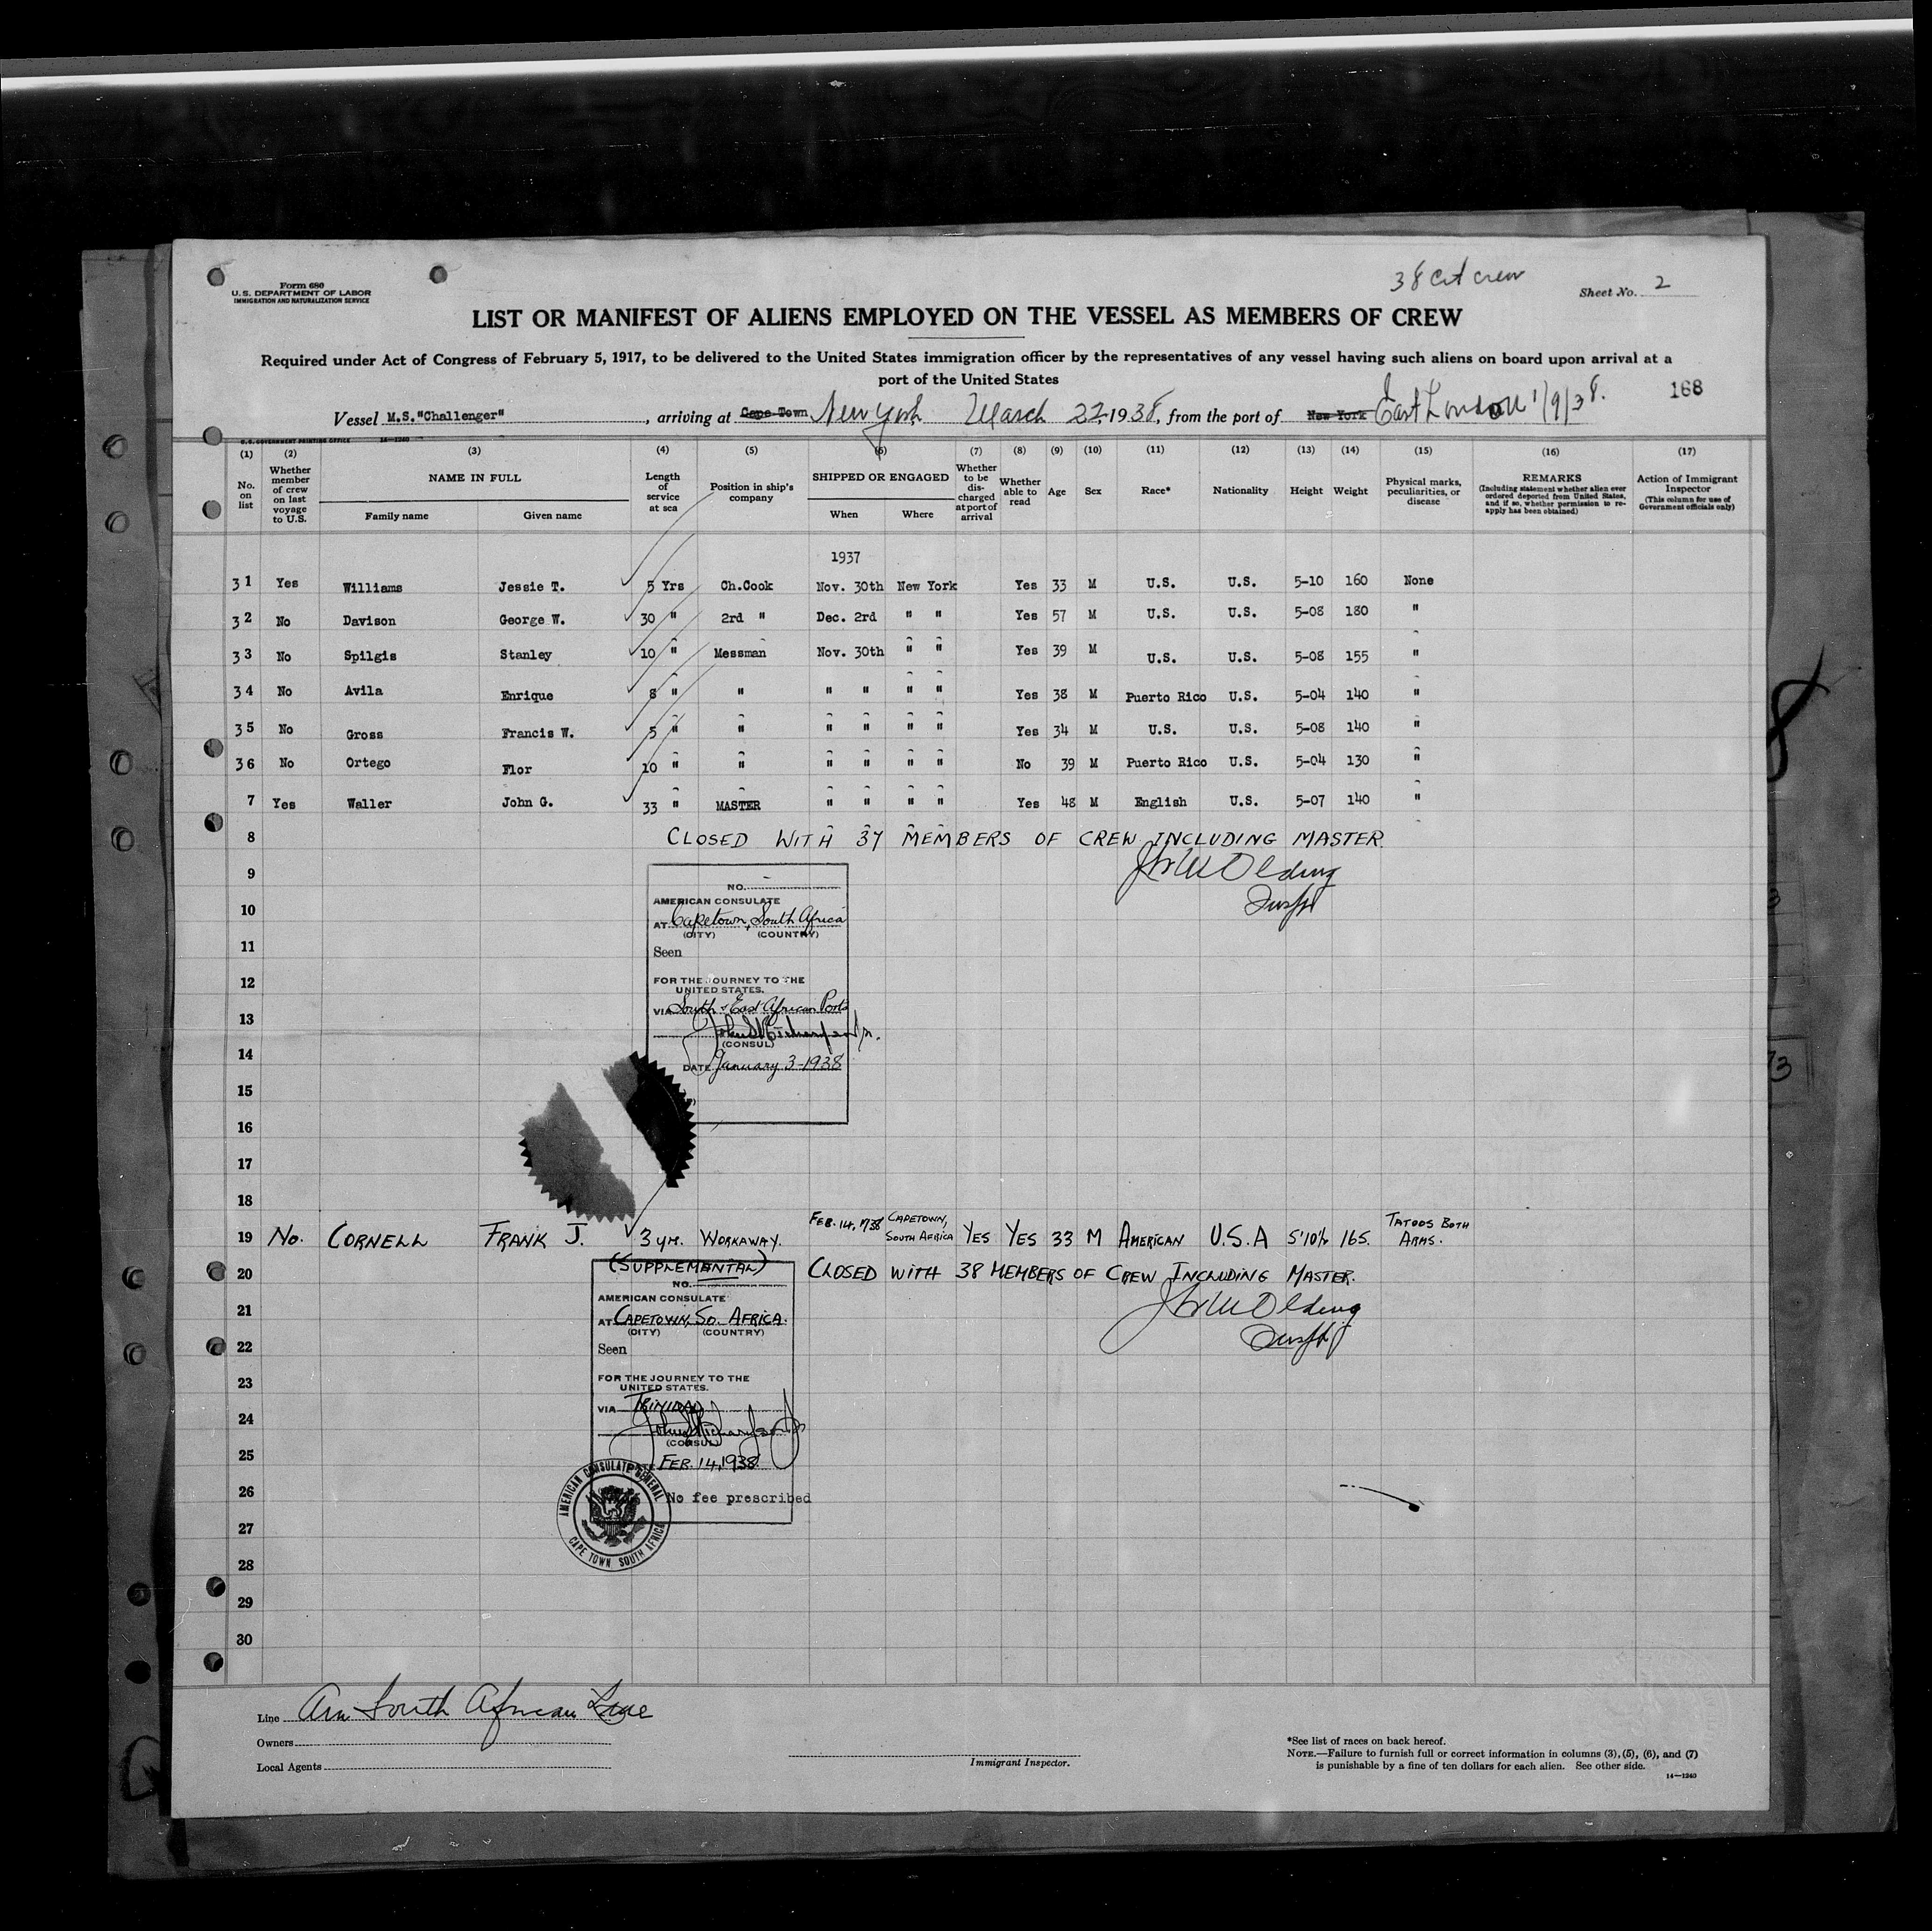 Form 680
U. S. DEPARTMENT OF LABOR
IMMIGRATION AND NATURALIZATION SERVICE
38 Cit crew
Sheet No. 2
LIST OR MANIFEST OF ALIENS EMPLOYED ON THE VESSEL AS MEMBERS OF CREW
Required under Act of Congress of February 5, 1917, to be delivered to the United States immigration officer by the representatives of any vessel having such aliens on board upon arrival at a
port of the United States
168
Vessel M.S."Challenger", arriving at Cape Town New York March 22, 1938, from the port of New York East London 1/9/38.
U.S. GOVERNMENT PRINTING OFFICE 14—1240
(1) (2) (3) (4) (5) (6) (7) (8) (9) (10) (11) (12) (13) (14) (15) (16) (17)
No. on list
Whether member of crew on last voyage to U.S.
NAME IN FULL
Family name Given name
Length of service at sea
Position in ship's company
SHIPPED OR ENGAGED
When Where
Whether to be discharged at port of arrival
Whether able to read
Age
Sex
Race*
Nationality
Height
Weight
Physical marks, peculiarities, or disease
REMARKS
(Including statement whether alien ever ordered deported from United States, and if so, whether permission to reapply has been obtained)
Action of Immigrant Inspector
(This column for use of Government officials only)
1937
31 Yes Williams Jessie T. 5 Yrs Ch.Cook Nov. 30th New York Yes 33 M U.S. U.S. 5-10 160 None
32 No Davison George W. 30 " 2rd " Dec. 2rd " " Yes 57 M U.S. U.S. 5-08 180 "
33 No Spilgis Stanley 10 " Messman Nov. 30th " " Yes 39 M U.S. U.S. 5-08 155 "
34 No Avila Enrique 8 " " " " " " Yes 38 M Puerto Rico U.S. 5-04 140 "
35 No Gross Francis W. 5 " " " " " " Yes 34 M U.S. U.S. 5-08 140 "
36 No Ortego Flor 10 " " " " " " No 39 M Puerto Rico U.S. 5-04 130 "
7 Yes Waller John G. 33 " MASTER " " " " Yes 48 M English U.S. 5-07 140 "
8 CLOSED WITH 37 MEMBERS OF CREW INCLUDING MASTER.
9
10
11
12
13
14
15
16
17
18
NO.
AMERICAN CONSULATE
AT Capetown, South Africa
(CITY) (COUNTRY)
Seen
FOR THE JOURNEY TO THE
UNITED STATES.
VIA South & East African Ports
(CONSUL)
DATE January 3-1938
19 No. CORNELL FRANK J. 3 yrs. WORKAWAY. FEB. 14, 1938 CAPETOWN, SOUTH AFRICA YES YES 33 M AMERICAN U.S.A 5'10½ 165. TATOOS BOTH ARMS.
20 (SUPPLEMENTAL) CLOSED WITH 38 MEMBERS OF CREW INCLUDING MASTER.
21
22
23
24
25
26
27
28
29
30
NO.
AMERICAN CONSULATE
AT CAPETOWN, SO. AFRICA.
(CITY) (COUNTRY)
Seen
FOR THE JOURNEY TO THE
UNITED STATES.
VIA TRINIDAD
(CONSUL)
FEB. 14, 1938
No fee prescribed
AMERICAN CONSULATE GENERAL
CAPE TOWN SOUTH AFRICA
Line Am South African Line
Owners
Local Agents
Immigrant Inspector.
*See list of races on back hereof.
NOTE.—Failure to furnish full or correct information in columns (3), (5), (6), and (7)
is punishable by a fine of ten dollars for each alien. See other side.
14—1240